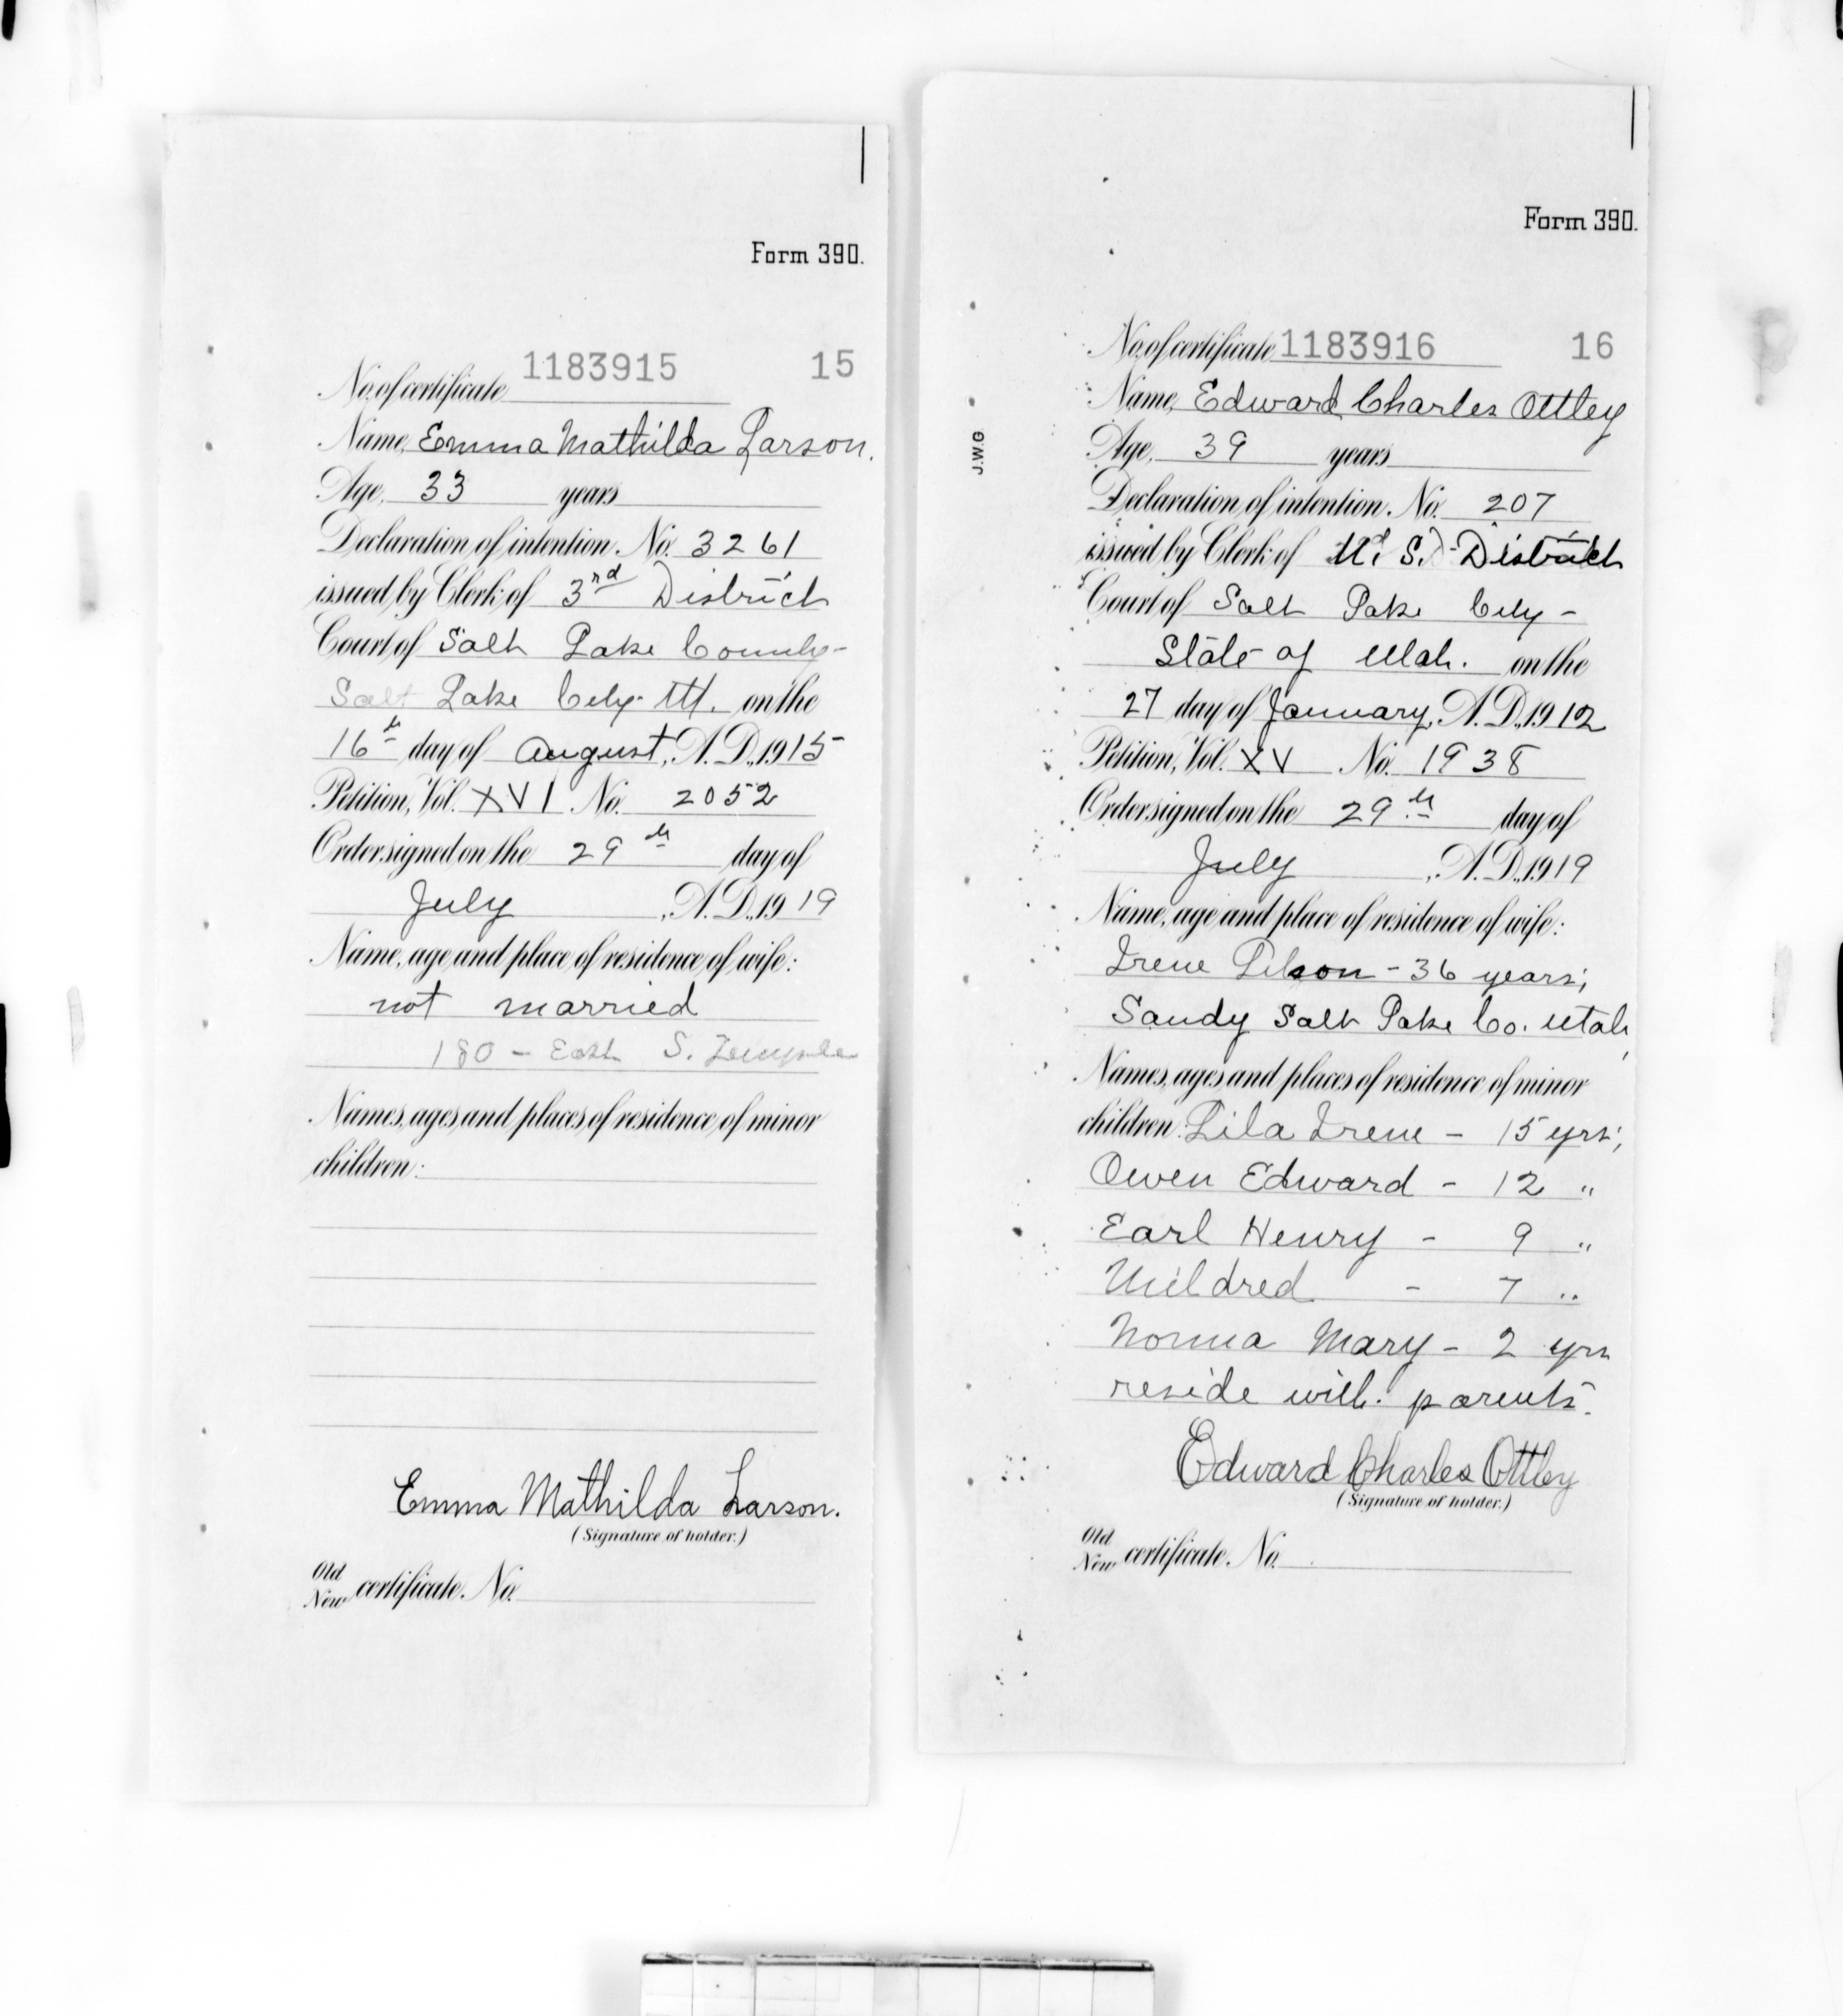 Form 390.
No. of certificate 1183915 15
Name, Emma Mathilda Larson.
Age, 33 years
Declaration of intention. No. 3261
issued by Clerk of 3rd District
Court of Salt Lake County-
Salt Lake City. Ut. on the
16th day of August, A.D., 1915
Petition, Vol. XVI No. 2052
Order signed on the 29th day of
July, A.D., 1919
Name, age and place of residence of wife:
not married
180 - East S. Temple
Names, ages and places of residence of minor
children:
Emma Mathilda Larson.
(Signature of holder.)
Old
New certificate. No.
Form 390.
J.W.G
No. of certificate 1183916 16
Name, Edward Charles Ottley
Age, 39 years
Declaration of intention. No. 207
issued by Clerk of U. S. District
Court of Salt Lake City -
State of Utah. on the
27 day of January, A.D., 1912
Petition, Vol. XV No. 1938
Order signed on the 29th day of
July, A.D., 1919
Name, age and place of residence of wife:
Irene - 36 years;
Sandy Salt Lake Co. Utah,
Names, ages and places of residence of minor
children: Lila Irene - 15 yrs;
Owen Edward - 12 "
Earl Henry - 9 "
Mildred - 7 "
Norma Mary - 2 yrs
reside with parents.
Edward Charles Ottley
(Signature of holder.)
Old
New certificate. No.